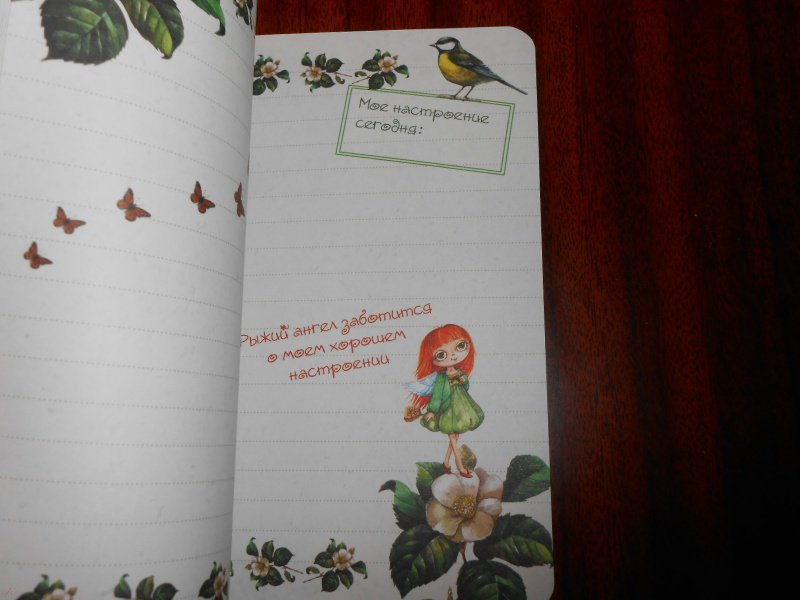 Мое настроение
сегодня:
Рыжий ангел заботится
о моем хорошем
настроении